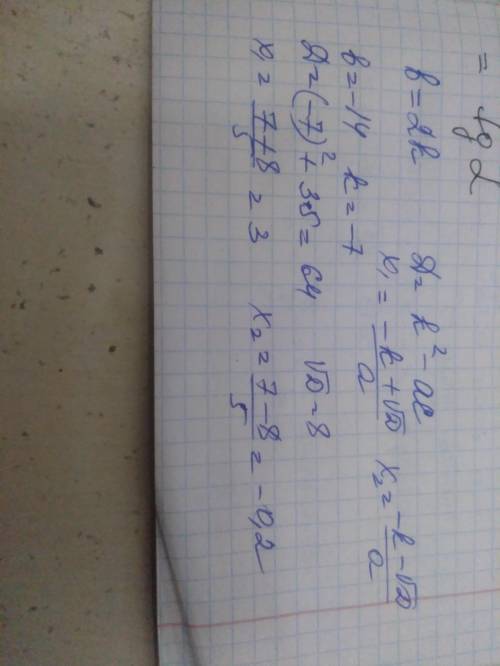 = tg α
b = 2k D = k² - ac
x₁ = (-k + √D)/a x₂ = (-k - √D)/a
b = -14 k = -7
D = (-7)² + 35 = 64 √D = 8
x₁ = (7 + 8)/5 = 3 x₂ = (7 - 8)/5 = -0,2